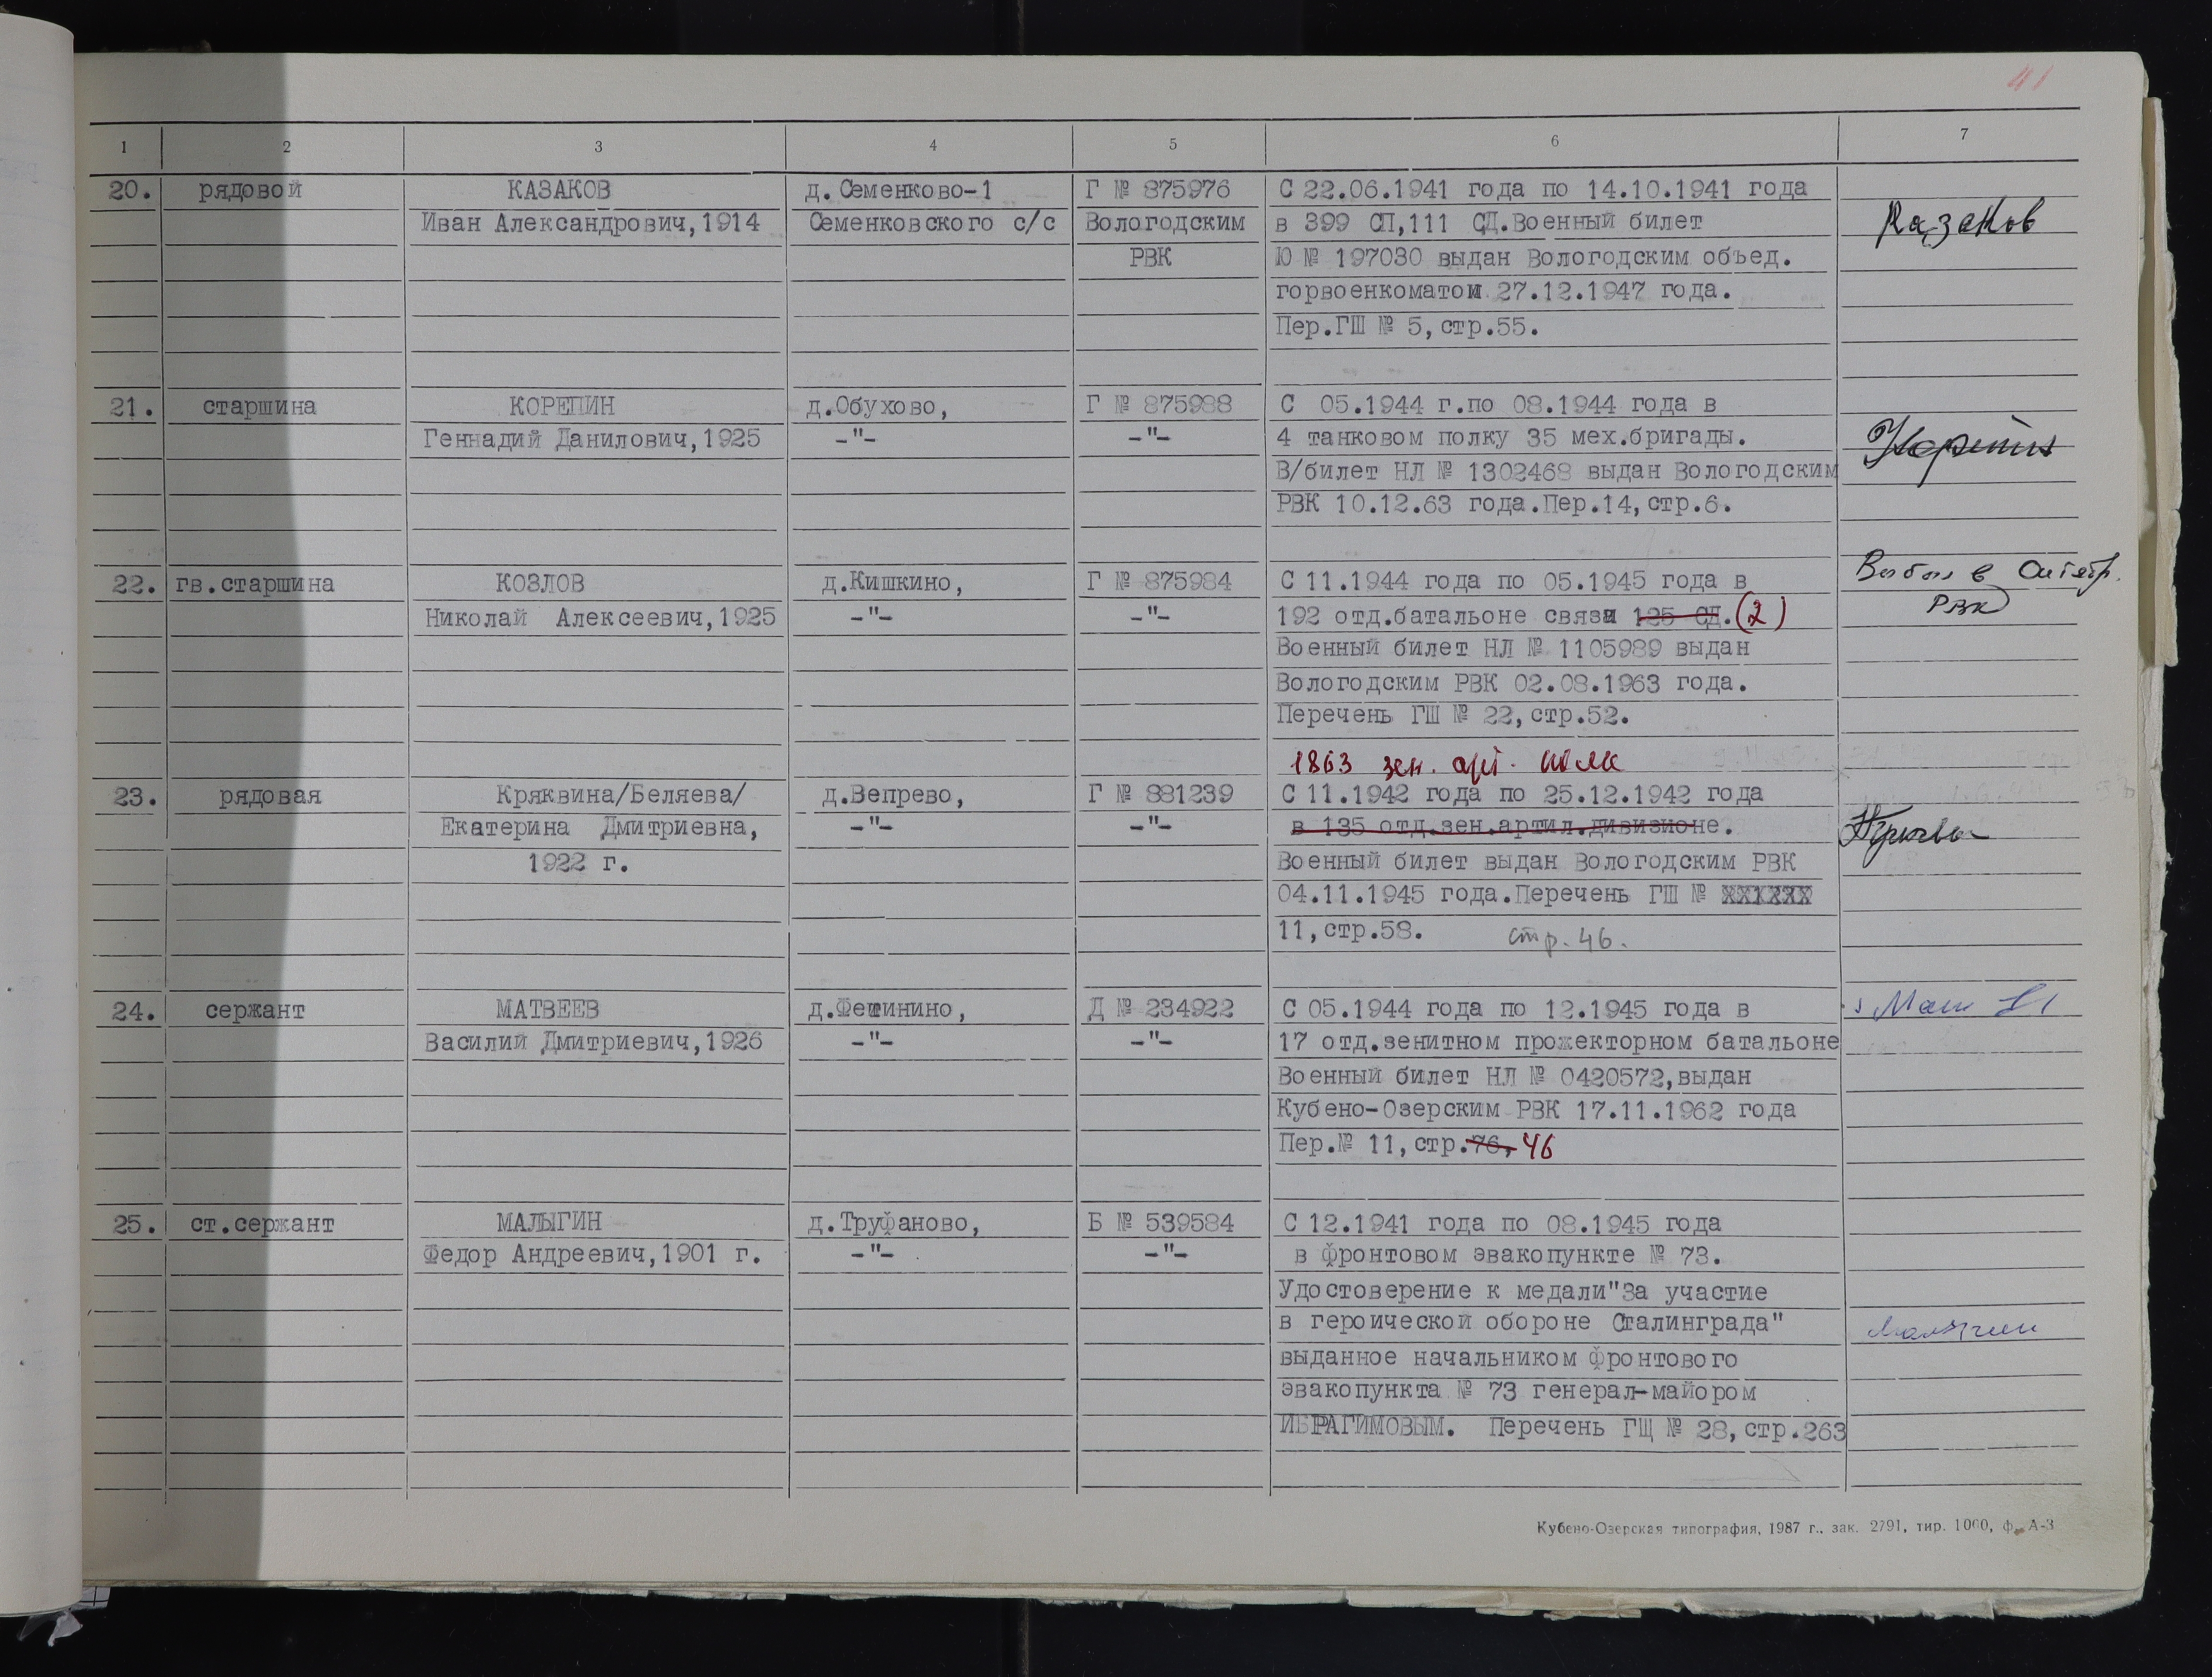 41
1 2 3 4 5 6 7
20. рядовой КАЗАКОВ д.Семенково-1 Г № 875976 С 22.06.1941 года по 14.10.1941 года
Иван Александрович,1914 Семенковского с/с Вологодским в 399 СП,111 СД.Военный билет Казаков
РВК Ю № 197030 выдан Вологодским объед.
горвоенкоматом 27.12.1947 года.
Пер.ГШ № 5,стр.55.
21. старшина КОРЕПИН д.Обухово, Г № 875988 С 05.1944 г.по 08.1944 года в
Геннадий Данилович,1925 -"- -"- 4 танковом полку 35 мех.бригады. Корепин
В/билет НЛ № 1302468 выдан Вологодским
РВК 10.12.63 года.Пер.14,стр.6.
22. гв.старшина КОЗЛОВ д.Кишкино, Г № 875984 С 11.1944 года по 05.1945 года в Выбыл в Октябр.
Николай Алексеевич,1925 -"- -"- 192 отд.батальоне связи 125 СД.(2) РВК
Военный билет НЛ № 1105989 выдан
Вологодским РВК 02.08.1963 года.
Перечень ГШ № 22,стр.52.
1863 зен. арт. полк
23. рядовая Кряквина/Беляева/ д.Вепрево, Г № 881239 С 11.1942 года по 25.12.1942 года
Екатерина Дмитриевна, -"- -"- в 135 отд.зен.артил.дивизионе.
1922 г. Военный билет выдан Вологодским РВК
04.11.1945 года.Перечень ГШ № XXXXXX
11,стр.58. стр. 46.
24. сержант МАТВЕЕВ д.Фетинино, Д № 234922 С 05.1944 года по 12.1945 года в
Василий Дмитриевич,1926 -"- -"- 17 отд.зенитном прожекторном батальоне
Военный билет НЛ № 0420572,выдан
Кубено-Озерским РВК 17.11.1962 года
Пер.№ 11,стр.76, 46
25. ст.сержант МАЛЫГИН д.Труфаново, Б № 539584 С 12.1941 года по 08.1945 года
Федор Андреевич,1901 г. -"- -"- в фронтовом эвакопункте № 73.
Удостоверение к медали"За участие
в героической обороне Сталинграда" Малыгин
выданное начальником фронтового
эвакопункта № 73 генерал-майором
ИБРАГИМОВЫМ. Перечень ГЩ № 28,стр.263
Кубено-Озерская типография, 1987 г., зак. 2791, тир. 1000, ф. А-3